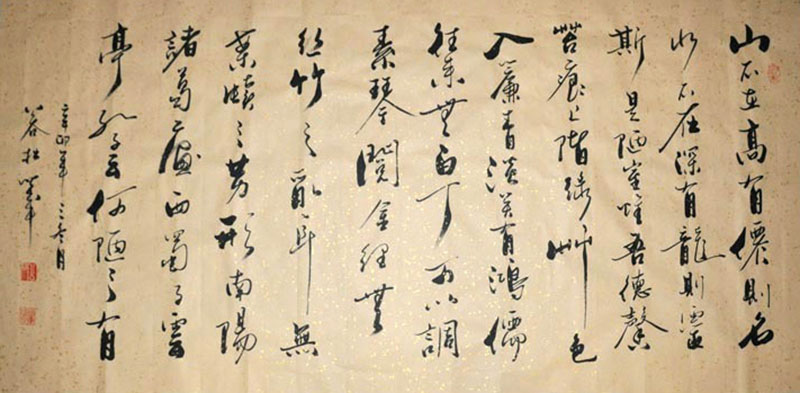 山不在高有僊則名
水不在深有龍則靈
斯是陋室惟吾德馨
苔痕上階綠艸色
入簾青談笑有鴻儒
往來無白丁可以調
素琴閱金經無
絲竹之亂耳無
案牘之勞形南陽
諸葛廬西蜀子雲
亭孔子云何陋之有
辛卯年三春月